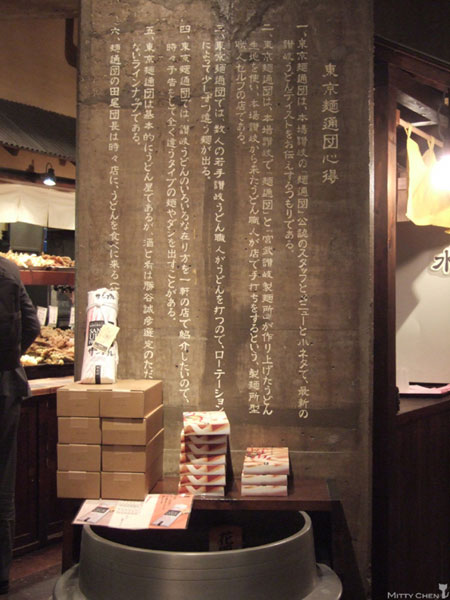 東京麺通団心得
一、東京麺通団は、本場讃岐の「麺通団」公認のスタッフとメニューと小ネタで、最新の
讃岐うどんテイストをお伝えするつもりである。
二、東京麺通団は、本場讃岐で「麺通団」と「宮武讃岐製麺所」が作り上げたうどん
生地を使い、本場讃岐から来たうどん職人が店で手打ちをするという、製麺所型
セルフの店である。
三、東京麺通団では、数人の若手讃岐うどん職人がうどんを打つので、ローテーション
によって少しずつ違う麺が出る。
四、東京麺通団では、讃岐うどんのいろいろな在り方を一軒の店で紹介したいので、
時々予告なしで全く違うタイプの麺やダシを出すことがある。
五、東京麺通団は基本的にうどん屋であるが、酒と肴は勝谷誠彦選定のただ
ないラインナップである。
六、麺通団の田尾団長は時々店に、うどんを食べに来る(
水
MITTY CHEN